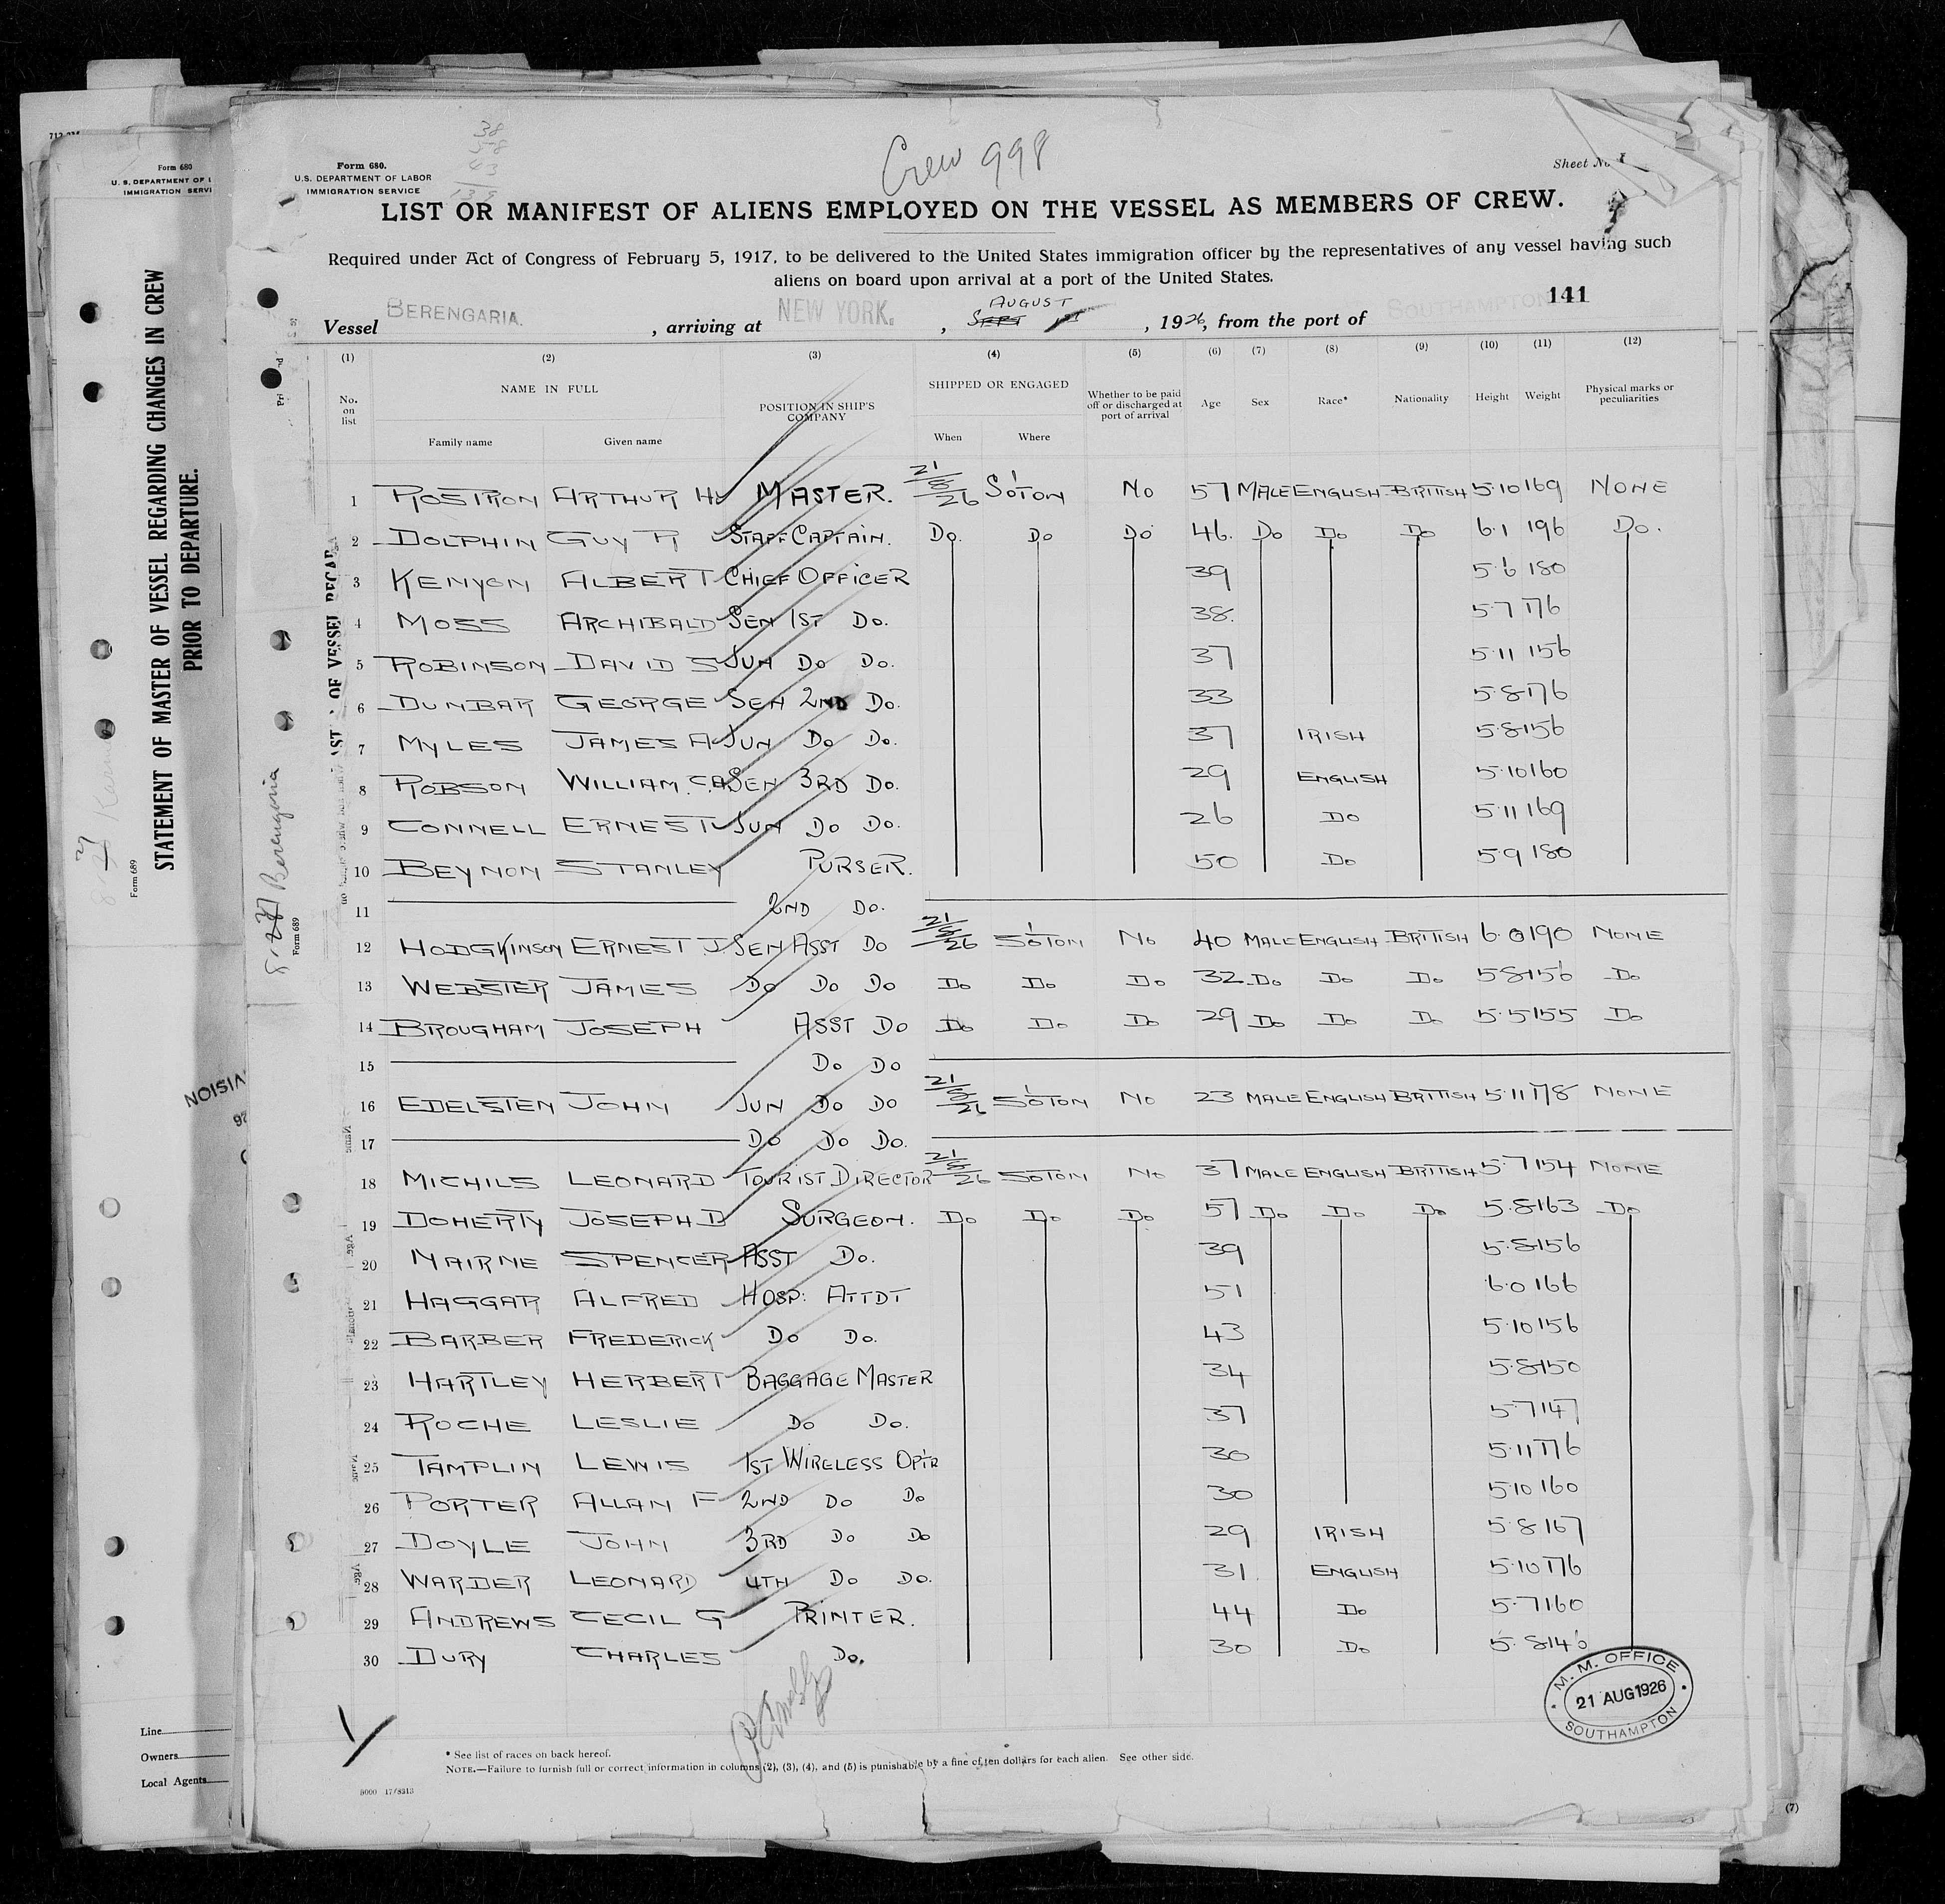 Form 680
U. S. DEPARTMENT OF L
IMMIGRATION SERVI
STATEMENT OF MASTER OF VESSEL REGARDING CHANGES IN CREW
PRIOR TO DEPARTURE.
Form 689
Line
Owners
Local Agents
Berengaria
Form 689
38
58
43
Form 680.
U. S. DEPARTMENT OF LABOR
IMMIGRATION SERVICE
Crew 998
Sheet No. 1
LIST OR MANIFEST OF ALIENS EMPLOYED ON THE VESSEL AS MEMBERS OF CREW.
Required under Act of Congress of February 5, 1917, to be delivered to the United States immigration officer by the representatives of any vessel having such
aliens on board upon arrival at a port of the United States.
141
Vessel BERENGARIA. , arriving at NEW YORK. , SEPT 1ST AUGUST , 1926, from the port of SOUTHAMPTON
(1) (2) (3) (4) (5) (6) (7) (8) (9) (10) (11) (12)
No. on list NAME IN FULL Family name Given name POSITION IN SHIP'S COMPANY SHIPPED OR ENGAGED When Where Whether to be paid off or discharged at port of arrival Age Sex Race* Nationality Height Weight Physical marks or peculiarities
1 ROSTRON ARTHUR H. MASTER. 21/8/26 S'OTON NO 57 MALE ENGLISH BRITISH 5.10 169 NONE
2 DOLPHIN GUY R STAFF CAPTAIN. DO. DO DO 46. DO DO DO 6.1 196 DO.
3 KENYON ALBERT CHIEF OFFICER 39 5.6 180
4 MOSS ARCHIBALD SEN 1ST DO. 38. 5.7 176
5 ROBINSON DAVID S JUN DO DO. 37 5.11 156
6 DUNBAR GEORGE SEN 2ND DO. 33 5.8 176
7 MYLES JAMES A JUN DO DO. 37 IRISH 5.8 156
8 ROBSON WILLIAM. C.A SEN 3RD DO. 29 ENGLISH 5.10 160
9 CONNELL ERNEST JUN DO DO. 26 DO 5.11 169
10 BEYNON STANLEY PURSER. 50 DO 5.9 180
11 2ND DO.
12 HODGKINSON ERNEST J. SEN ASST DO 21/8/26 S'OTON NO 40 MALE ENGLISH BRITISH 6.0 190 NONE
13 WEBSTER JAMES DO DO DO DO DO DO 32 DO DO DO 5.8 156 DO
14 BROUGHAM JOSEPH ASST DO DO DO DO 29 DO DO DO 5.5 155 DO
15 DO DO
16 EDELSTEN JOHN JUN DO DO 21/8/26 S'OTON NO 23 MALE ENGLISH BRITISH 5.11 178 NONE
17 DO DO DO.
18 MICHILS LEONARD TOURIST DIRECTOR 21/8/26 S'OTON NO 37 MALE ENGLISH BRITISH 5.7 154 NONE
19 DOHERTY JOSEPH D SURGEON. DO DO DO 57 DO DO DO 5.8 163 DO
20 NAIRNE SPENCER ASST DO. 39 5.8 156
21 HAGGAR ALFRED HOSP: ATTDT 51 6.0 166
22 BARBER FREDERICK DO DO. 43 5.10 156
23 HARTLEY HERBERT BAGGAGE MASTER 34 5.8 150
24 ROCHE LESLIE DO DO. 37 5.7 147
25 TAMPLIN LEWIS 1ST WIRELESS OPTR 30 5.11 176
26 PORTER ALLAN F 2ND DO DO 30 5.10 160
27 DOYLE JOHN 3RD DO DO 29 IRISH 5.8 167
28 WARDER LEONARD 4TH DO DO. 31. ENGLISH 5.10 176
29 ANDREWS CECIL G PRINTER. 44 DO 5.7 160
30 DURY CHARLES DO. 30 DO 5.8 146
M. M. OFFICE
21 AUG 1926
SOUTHAMPTON
* See list of races on back hereof.
NOTE.—Failure to furnish full or correct information in columns (2), (3), (4), and (5) is punishable by a fine of ten dollars for each alien. See other side.
(7)